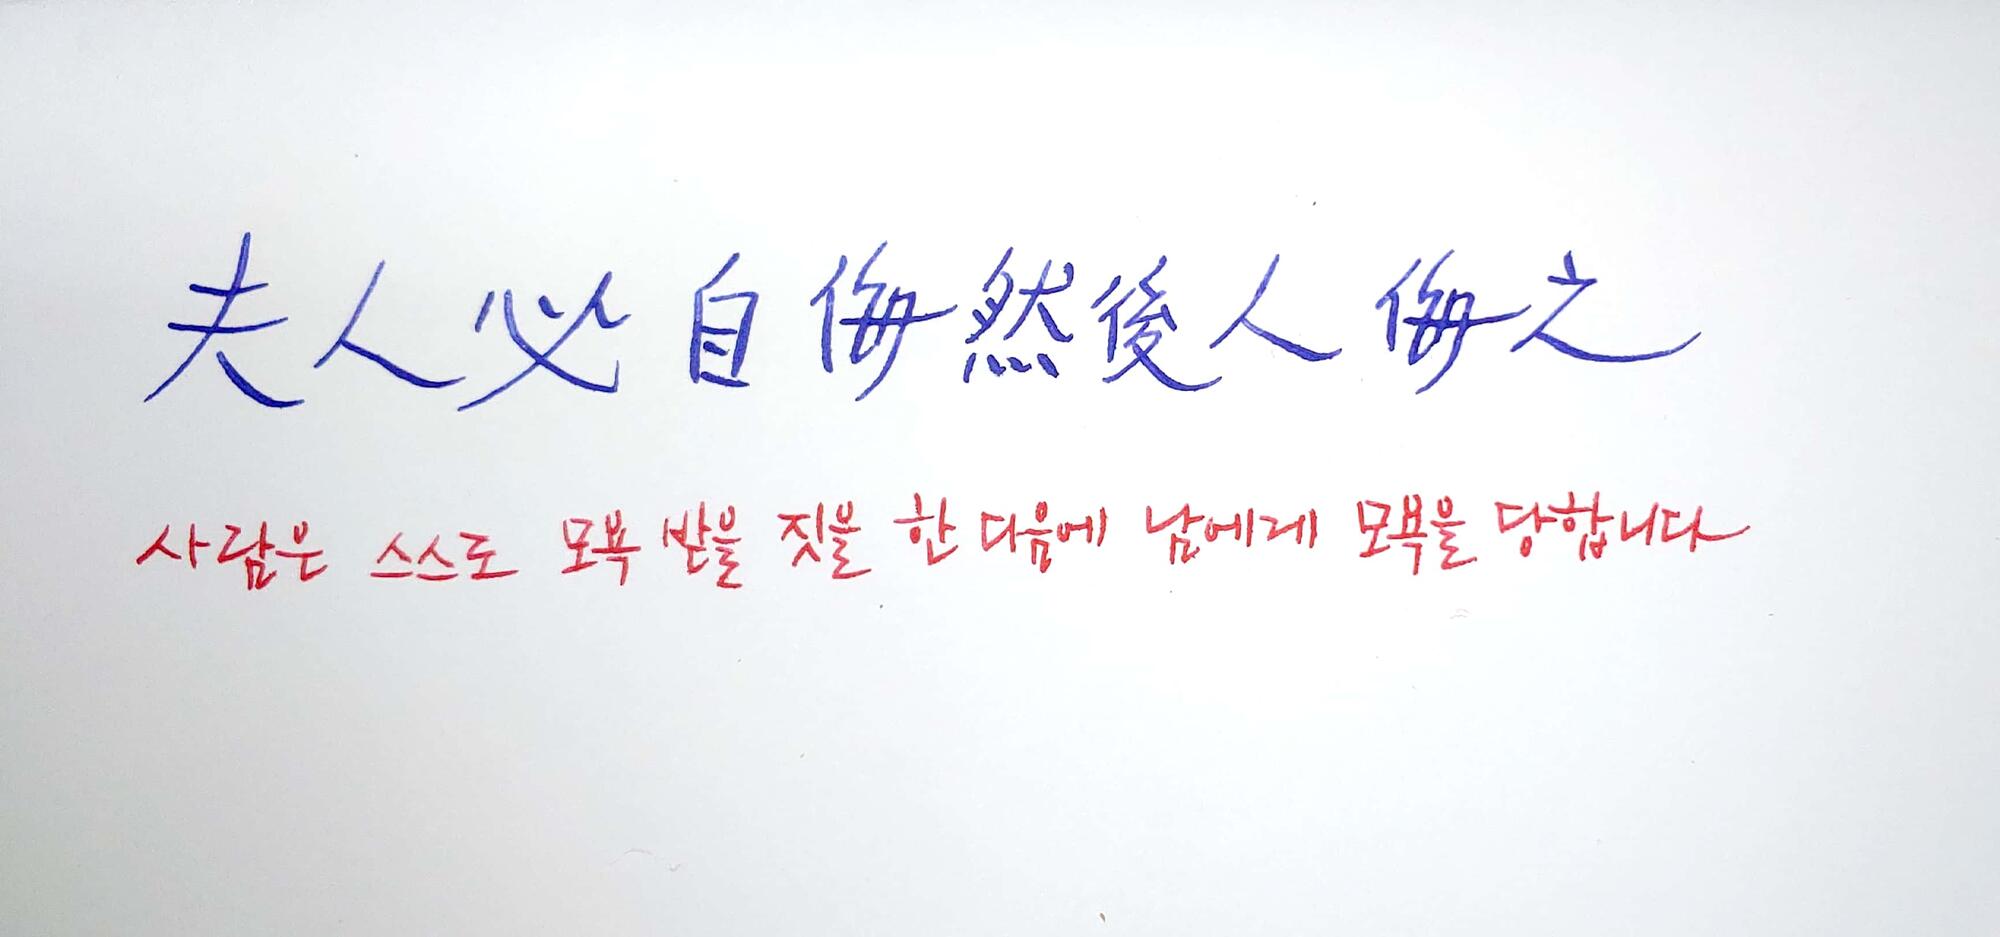 夫人必自侮然後人侮之
사람은 스스로 모욕 받을 짓을 한 다음에 남에게 모욕을 당합니다